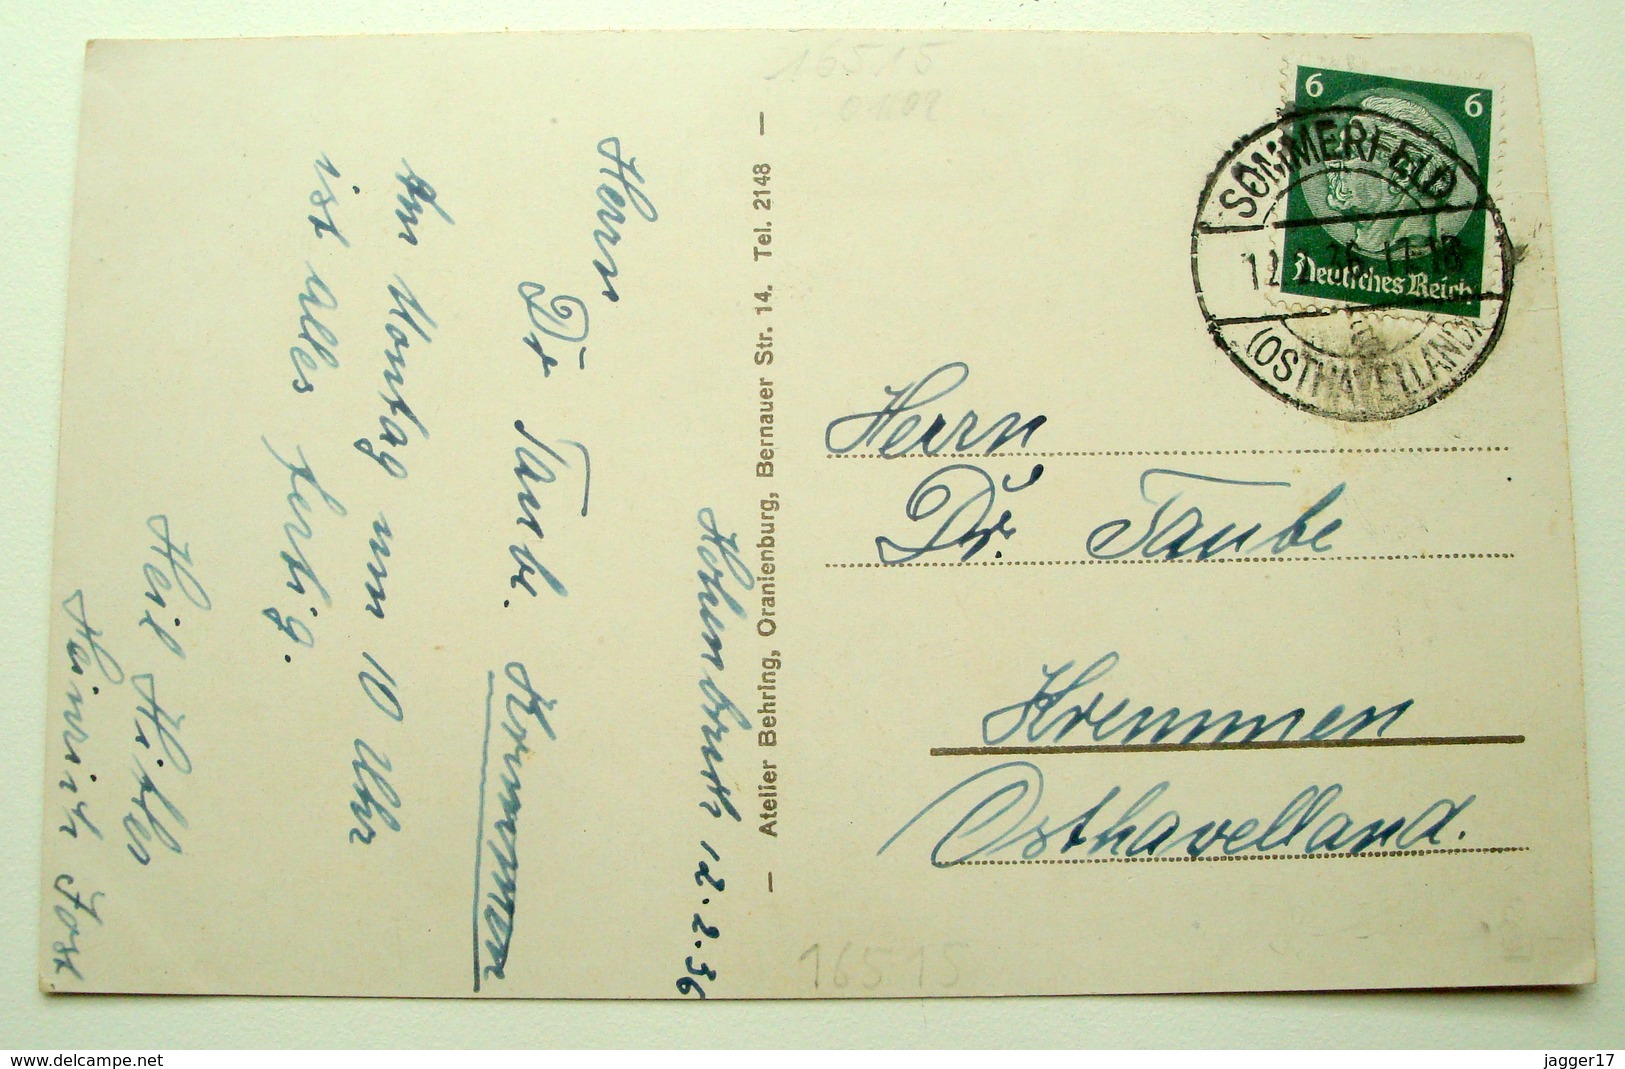 Hohenbruch 12.2.36
Herrn
Dr Taube. Kremmen
Am Montag um 10 Uhr
ist alles fertig.
Heil Hitler
Heinrich Jost
— Atelier Behring, Oranienburg, Bernauer Str. 14. Tel. 2148 —
16515
6 6
Deutsches Reich
SOMMERFELD
12.2.36.17-18
(OSTHAVELLAND)
Herrn
Dr. Taube
Kremmen
Osthavelland.
16515
www.delcampe.net
jagger17